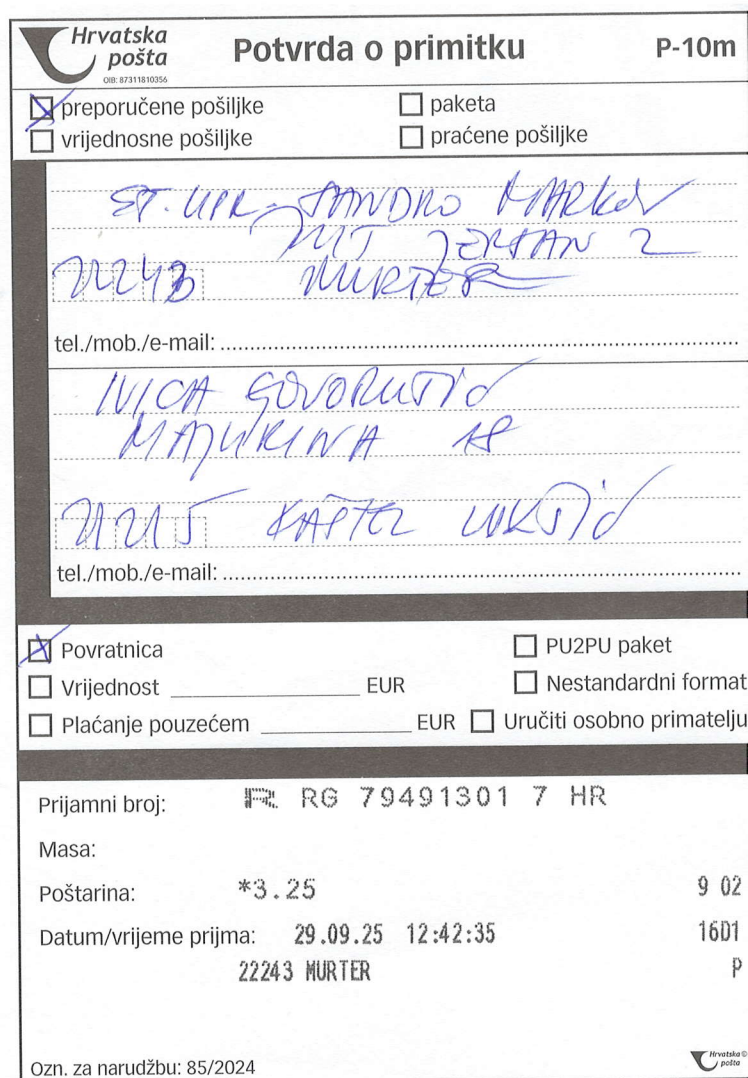 Hrvatska
pošta
OIB: 87311810356
Potvrda o primitku
P-10m
preporučene pošiljke
paketa
vrijednosne pošiljke
praćene pošiljke
ST. UPR. SANDRO MARKOV
PUT JERSAN 2
22243 MURTER
tel./mob./e-mail:
IVICA GOVORUŠIĆ
MAJURINA 18
21215 KAŠTEL LUKŠIĆ
tel./mob./e-mail:
Povratnica
PU2PU paket
Vrijednost EUR
Nestandardni format
Plaćanje pouzećem EUR
Uručiti osobno primatelju
Prijamni broj: R RG 79491301 7 HR
Masa:
Poštarina: *3.25 9 02
Datum/vrijeme prijma: 29.09.25 12:42:35 16D1
22243 MURTER P
Ozn. za narudžbu: 85/2024
Hrvatska
pošta